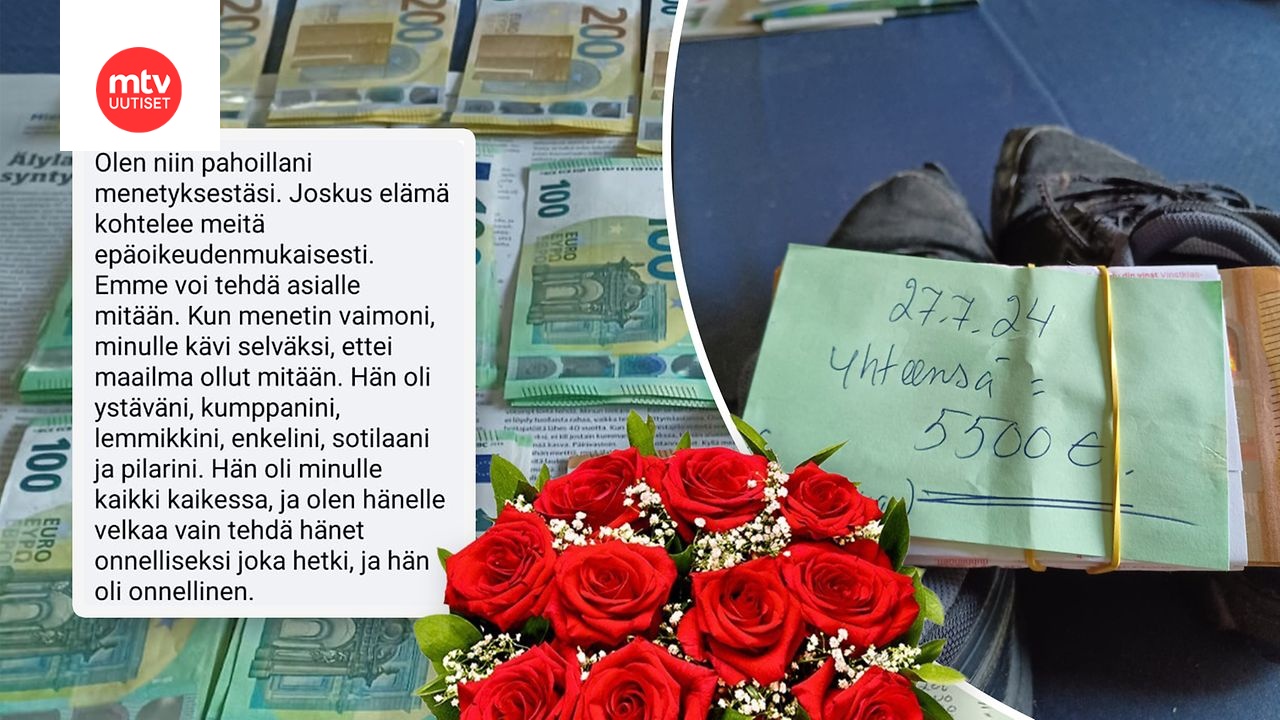 mtv
UUTISET
Älyla
synty
Olen niin pahoillani
menetyksestäsi. Joskus elämä
kohtelee meitä
epäoikeudenmukaisesti.
Emme voi tehdä asialle
mitään. Kun menetin vaimoni,
minulle kävi selväksi, ettei
maailma ollut mitään. Hän oli
ystäväni, kumppanini,
lemmikkini, enkelini, sotilaani
ja pilarini. Hän oli minulle
kaikki kaikessa, ja olen hänelle
velkaa vain tehdä hänet
onnelliseksi joka hetki, ja hän
oli onnellinen.
200
200
100
100
EURO
100
EURO
27.7.24
yhteensä =
5500 €.